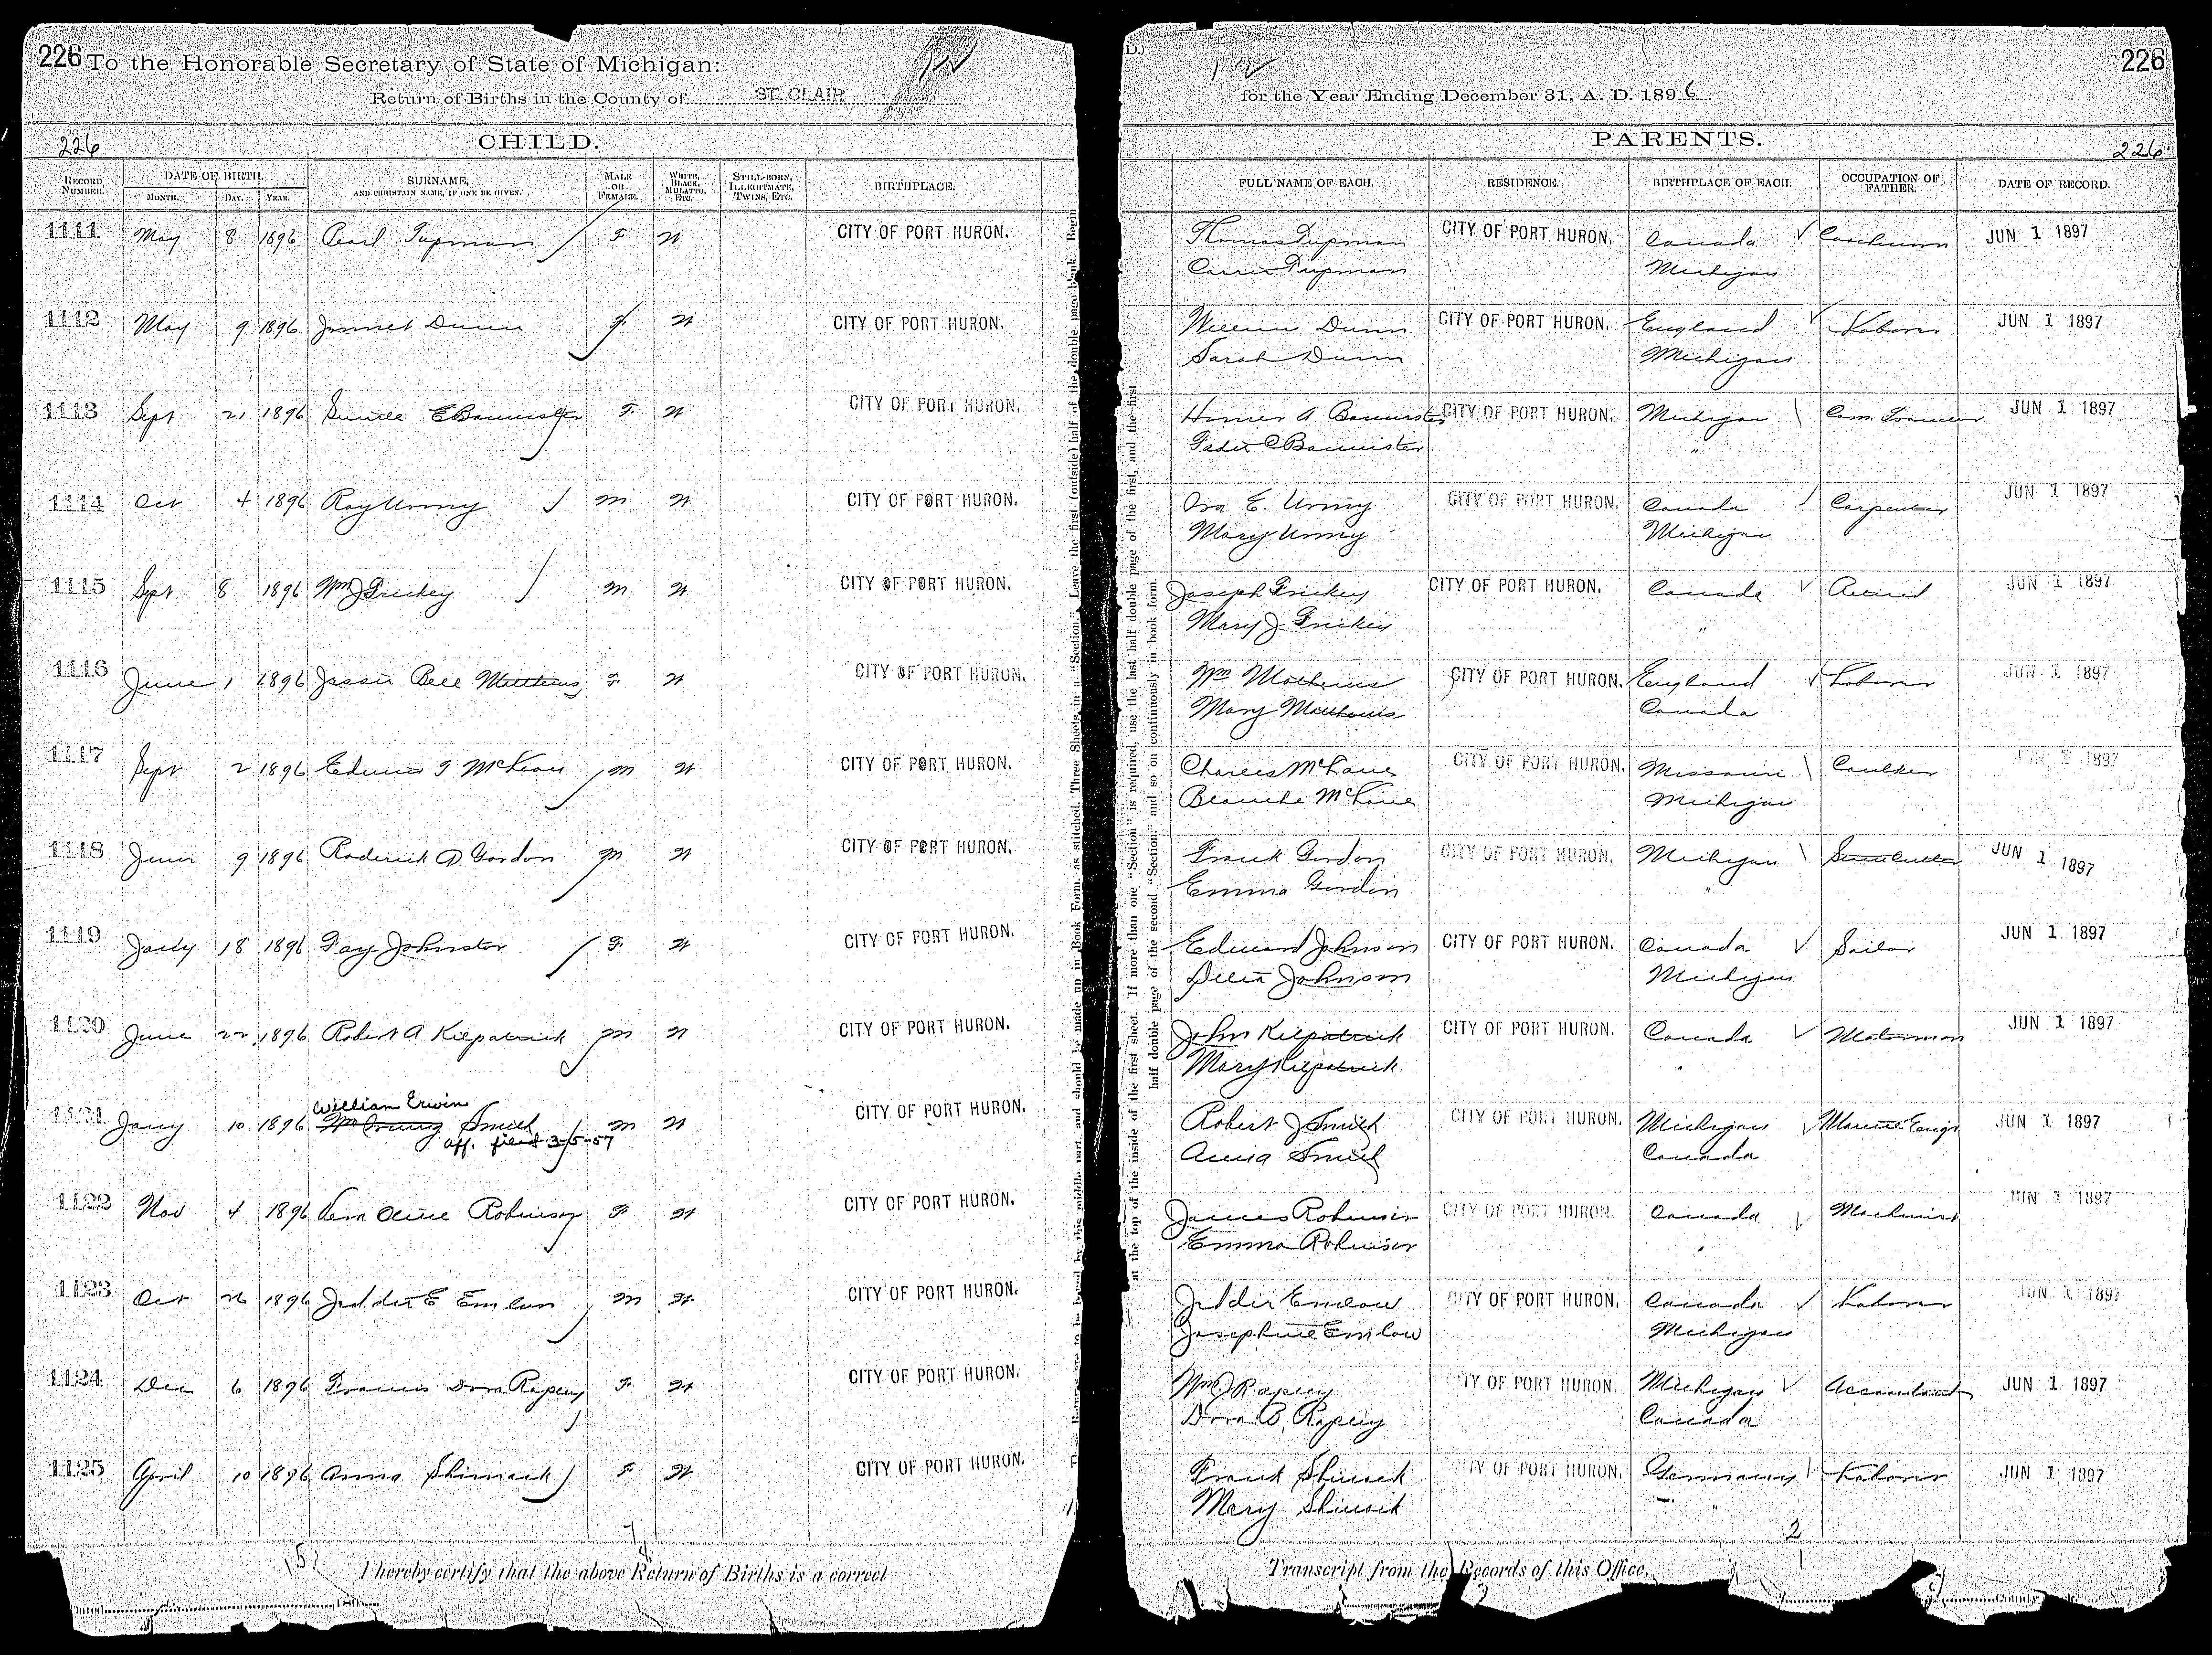 226 To the Honorable Secretary of State of Michigan:
Return of Births in the County of ST. CLAIR
226 CHILD.
RECORD NUMBER. DATE OF BIRTH. MONTH. DAY. YEAR. SURNAME, AND CHRISTAIN NAME, IF ONE BE GIVEN. MALE OR FEMALE. WHITE, BLACK, MULATTO, ETC. STILL-BORN, ILLEGITMATE, TWINS, ETC. BIRTHPLACE.
1111 May 8 1896 Pearl Tupman F W CITY OF PORT HURON.
1112 May 9 1896 Dunn F W CITY OF PORT HURON.
1113 Sept 21 1896 E Bannister F W CITY OF PORT HURON.
1114 Oct 4 1896 Roy Urmy M W CITY OF PORT HURON.
1115 Sept 8 1896 Wm J Frickey M W CITY OF PORT HURON.
1116 June 1 1896 Jessie Bell Matthews F W CITY OF PORT HURON.
1117 Sept 2 1896 Edwin McKean M W CITY OF PORT HURON.
1118 June 9 1896 Roderick A Gordon M W CITY OF PORT HURON.
1119 July 18 1896 Fay Johnston F W CITY OF PORT HURON.
1120 June 22 1896 Robert A Kilpatrick M W CITY OF PORT HURON.
William Erwin
1121 Jany 10 1896 Wm Smith M W CITY OF PORT HURON.
aff. filed 3-5-57
1122 Nov 4 1896 Vera Olive Robinson F W CITY OF PORT HURON.
1123 Oct 26 1896 E Emlow M W CITY OF PORT HURON.
1124 Dec 6 1896 Francis Dora Rapley F W CITY OF PORT HURON.
1125 April 10 1896 Anna F W CITY OF PORT HURON.
7
15
I hereby certify that the above Return of Births is a correct
Dated 189
These Returns are to be bound by this middle part, and should be made up in Book Form, as stitched. Three Sheets in a "Section." Leave the first (outside) half of the double page blank. Begin
D.)
12 226
for the Year Ending December 31, A. D. 1896
PARENTS. 226
FULL NAME OF EACH. RESIDENCE. BIRTHPLACE OF EACH. OCCUPATION OF FATHER. DATE OF RECORD.
Thomas Tupman CITY OF PORT HURON. Canada Coachman JUN 1 1897
Carrie Tupman Michigan
William Dunn CITY OF PORT HURON. England Laborer JUN 1 1897
Sarah Dunn Michigan
Homer A Bannister CITY OF PORT HURON. Michigan Com. Traveler JUN 1 1897
C Bannister "
Ora E. Urmy CITY OF PORT HURON. Canada Carpenter JUN 1 1897
Mary Urmy Michigan
Joseph Frickey CITY OF PORT HURON. Canada Retired JUN 1 1897
Mary J. Frickey "
Wm Mathews CITY OF PORT HURON. England Laborer JUN 1 1897
Mary Matthews Canada
Charles McKane CITY OF PORT HURON. Missouri Caulker JUN 1 1897
Blanche McKane Michigan
Frank Gordon CITY OF PORT HURON. Michigan JUN 1 1897
Emma Gordon "
Edward Johnson CITY OF PORT HURON. Canada Sailor JUN 1 1897
Delia Johnson Michigan
John Kilpatrick CITY OF PORT HURON. Canada Motorman JUN 1 1897
Mary Kilpatrick "
Robert J Smith CITY OF PORT HURON. Michigan Marine Engr JUN 1 1897
Anna Smith Canada
James Robinson CITY OF PORT HURON. Canada Machinist JUN 1 1897
Emma Robinson "
Emlow CITY OF PORT HURON. Canada Laborer JUN 1 1897
Josephine Emlow Michigan
Wm J Rapley CITY OF PORT HURON Michigan Accountant JUN 1 1897
Dora B. Rapley Canada
Frank CITY OF PORT HURON. Germany Laborer JUN 1 1897
Mary "
2
Transcript from the Records of this Office.
County
at the top of the inside of the first sheet. If more than one "Section" is required, use the last half double page of the first, and the first
half double page of the second "Section;" and so on continuously in book form.